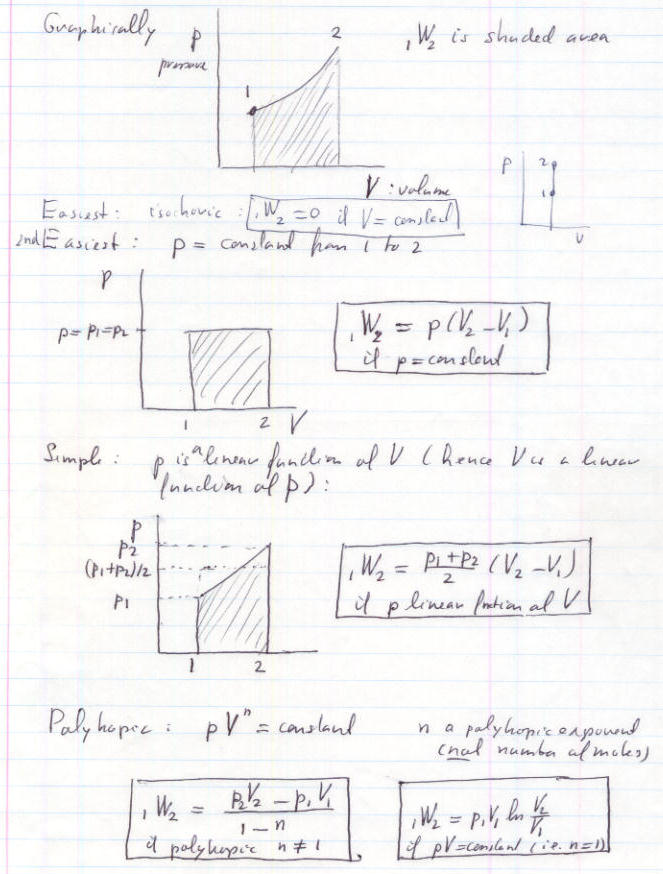 Graphically p 2 ₁W₂ is shaded area
pressure
1
V : volume
p 2 1 V
Easiest : isochoric : ₁W₂ = 0 if V = constant
2nd Easiest : p = constant from 1 to 2
p
p = p₁ = p₂
₁W₂ = p (V₂ – V₁)
if p = constant
1 2 V
Simple : p is a linear function of V (hence V is a linear
function of p) :
p
p2
(p₁+p₂)/2
p1
₁W₂ = (p₁ + p₂)/2 (V₂ – V₁)
if p linear function of V
1 2
Polytropic : pVⁿ = constant n a polytropic exponent
(not number of moles)
₁W₂ = (p₂V₂ – p₁V₁)/(1 – n)
if polytropic n ≠ 1
₁W₂ = p₁V₁ ln V₂/V₁
if pV = constant (i.e. n=1)